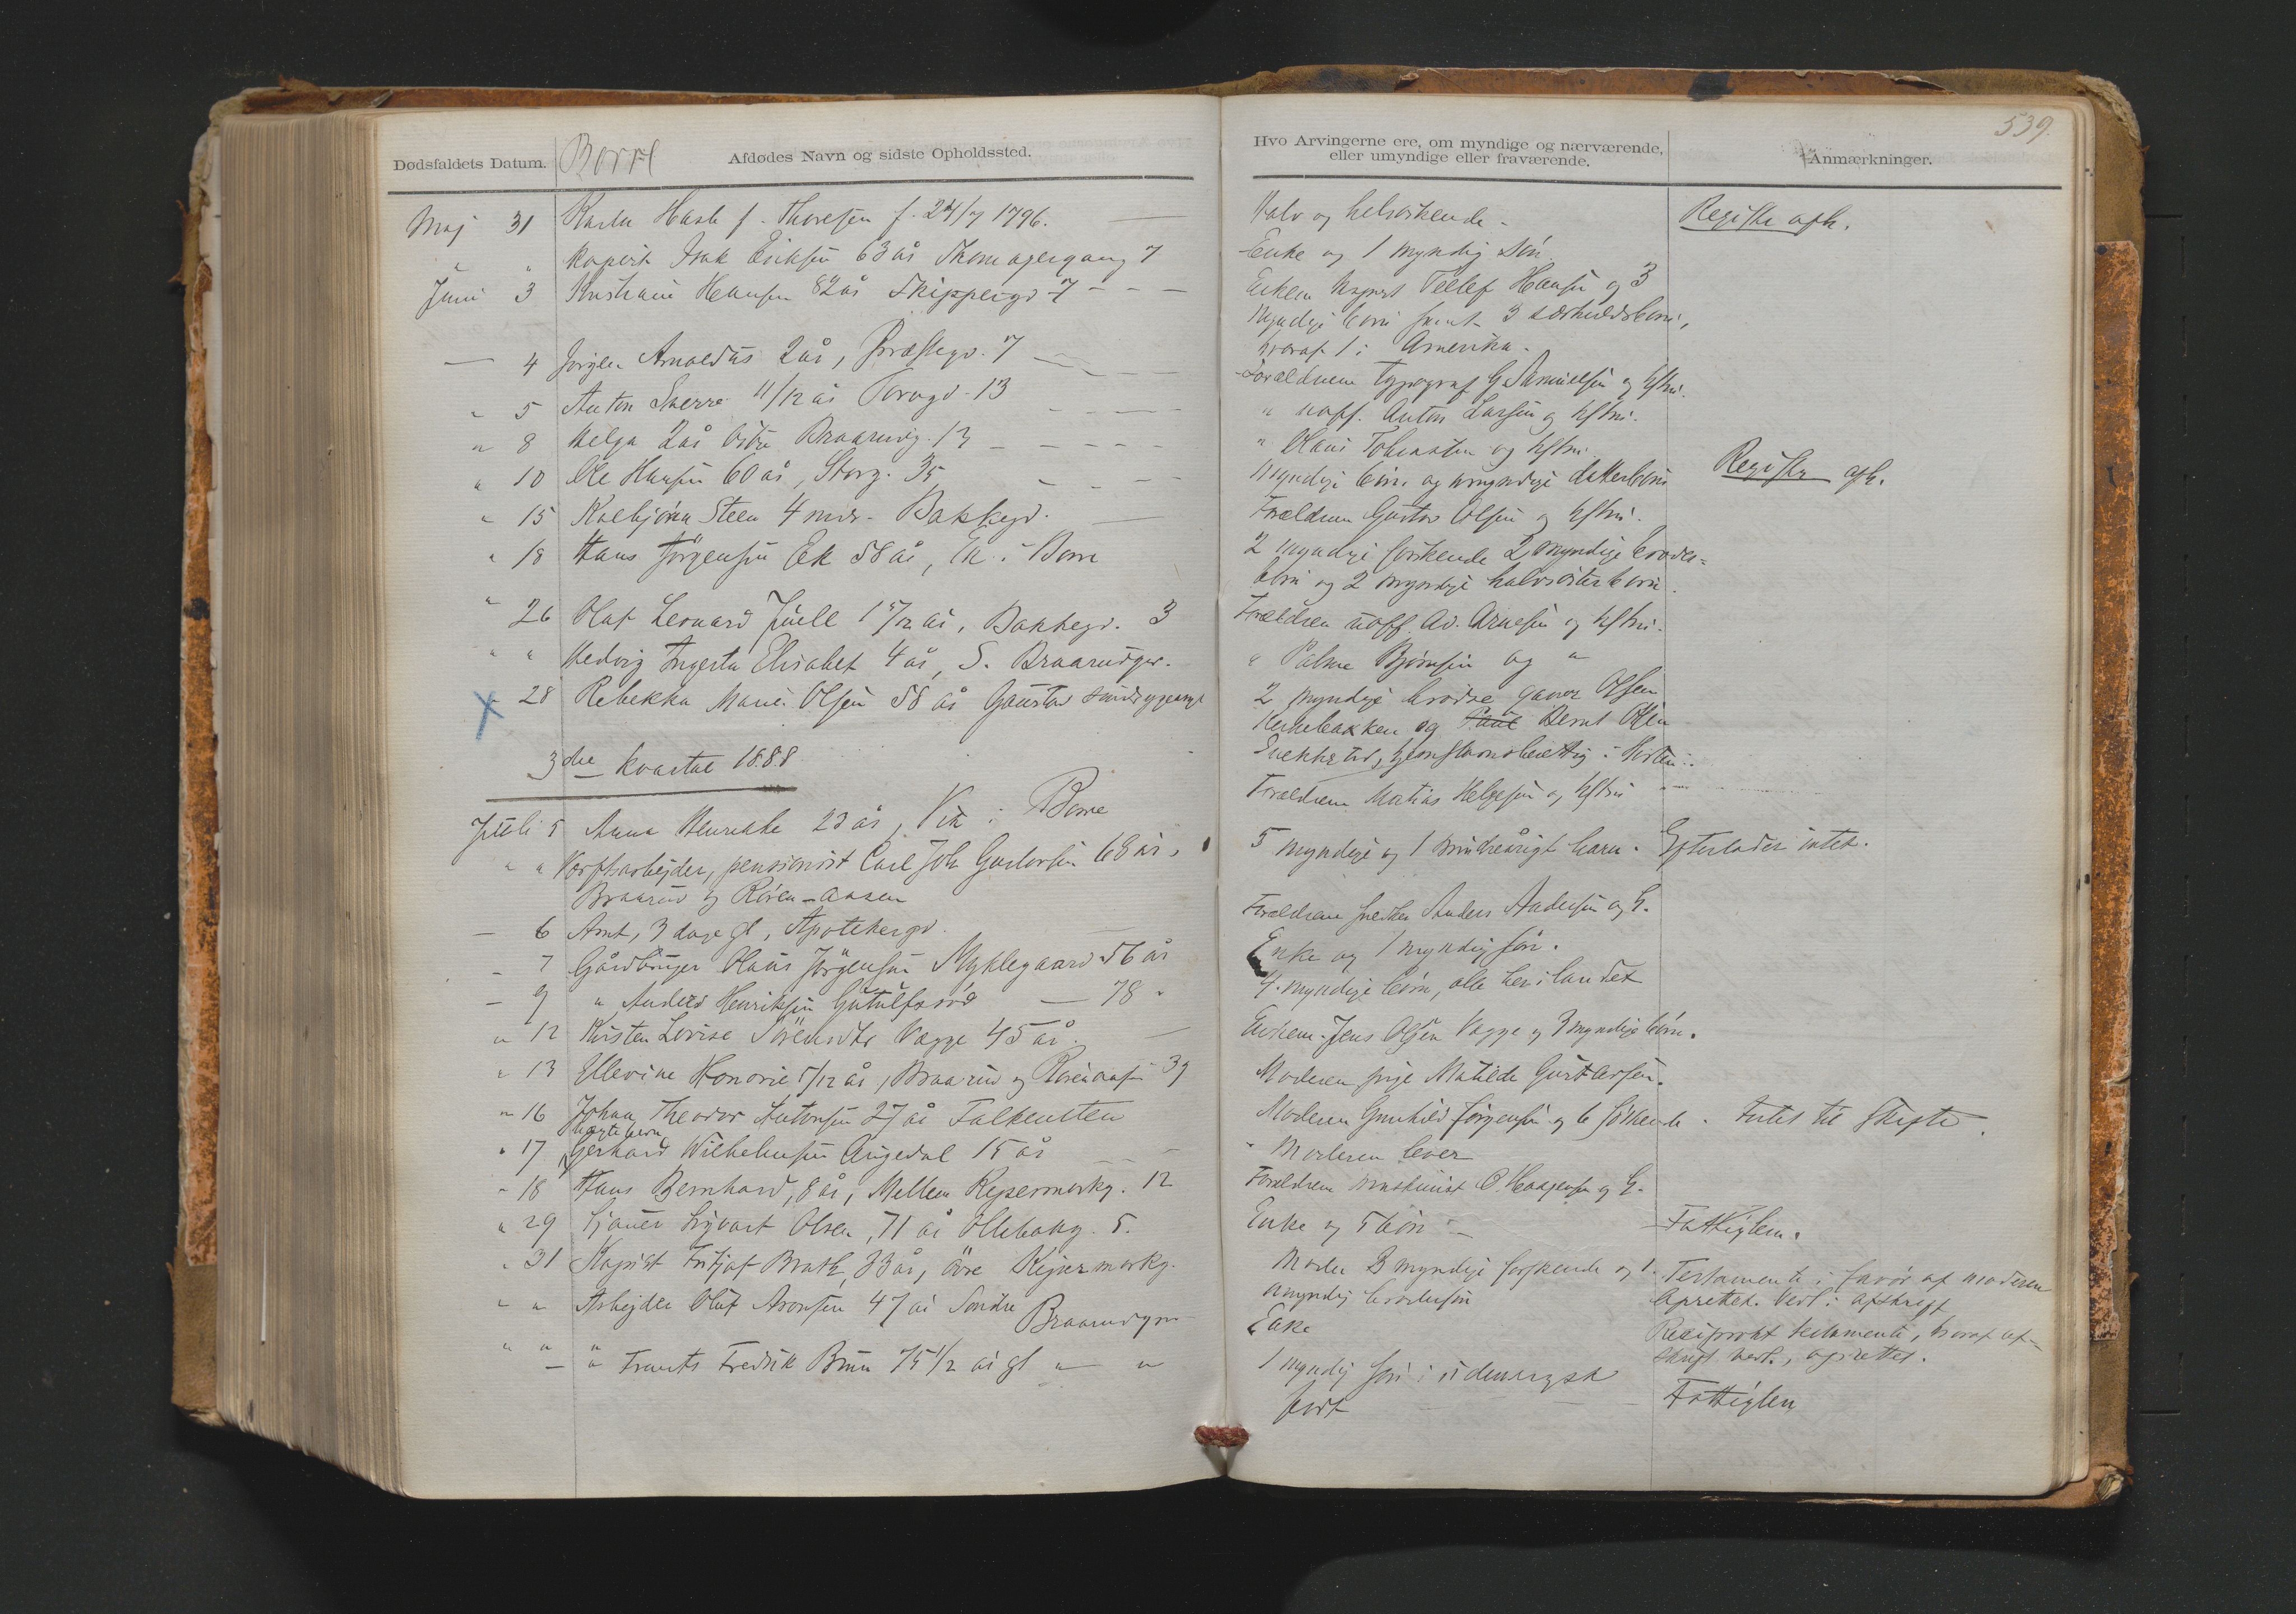 Dødsfaldets Datum. Borre Afdødes Navn og sidste Opholdssted.
Maj 31 Hash f. Thoresen f. 24/7 1796.
" " Kopist Isak Eriksen 63 år Skomagergang 7
Juni 3 Hansen 82 år Skippergd 7
— 4 Jørgen Arnoldus 2 år, Præstegd. 7
" 5 Anton Sverre 11/12 år Torvgd. 13
" 8 Helga 2 år Østre Braarudg. 13
" 10 Ole Hansen 60 år, Storg. 35
" 15 Kolbjörn Steen 4 mdr. Bakkegd.
" 18 Hans Jörgensen Ek 58 år, Ek i Borre
" 26 Olaf Leonard Juell 1 5/12 år, Bakkegd. 3
" " Hedvig Ingerta Elisabet 4 år, S. Braarudgd.
X " 28 Rebekka Marie Olsen 58 år Gaustad sindsygeasyl
3die kvartal 1888
Juli 5 Anna Henrikke 23 år, Vik i Borre
" " Værftsarbejder, pensionist Carl Joh Gustavsen 68 år,
Braarud og Rören-aasen
— 6 Arnt, 3 dage gl, Apothekergd.
— 7 Gårdbruger Olaus Jörgensen Myklegaard 56 år
— 9 " Anders Henriksen Gutulfsröd — 78 "
" 12 Kirsten Lovise Sörensdtr Vagge 45 år.
" 13 Ellevine Honorie 5/12 år, Braarud og Rörenaasen 39
" 16 Johan Theodor Antonsen 27 år Falkensten
" 17 Gerhard Wilhelmsen Angedal 15 år
" 18 Hans Bernhard, 8 år, Mellem Keisermarkg. 12
" 29 Sjauer Sivert Olsen, 71 år Ollebakg. 5.
" 31 Kopist Fritjof Brath, 33 år, övre Keisermarkg.
" " Arbejder Oluf Aronsen 47 år Söndre Braarudgd
" " " — " Frants Fredrik Brun 75 1/2 år gl " "
539.
Hvo Arvingerne ere, om myndige og nærværende,
eller umyndige eller fraværende.
Anmærkninger.
Halv og helsöskende. Registr afh.
Enke og 1 myndig sön
Enkem Tellef Hansen og 3
myndige börn samt 3 særkuldsbörn,
hvoraf 1 i Amerika.
Forældrene typograf G. Samuelsen og hstru.
" uoff. Anton Larsen og hstru.
" Olaus Johansen og hstru
myndige börn og umyndige datterbörn Registr afh.
Forældrene Gustav Olsen og hstru.
2 myndige söskende 2 myndige broder=
börn og 2 myndige halvsösterbörn.
Forældrene uoff. Ad. Arnesen og hstru.
" Palme Björnsen og "
2 myndige brödre Olsen
Kirkebakken og Bernt Olsen
i Horten.
Forældrene Mathias Helgesen og hstru
5 myndige og 1 mindreårigt barn. Efterlader intet.
Forældrene snedker Anders Andersen og H.
Enke og 1 myndig sön.
4 myndige börn, alle her i landet
Enkem. Jens Olsen Vagge og 3 myndige börn.
Moderen pige Matilde Gustavsen.
Moderen Gunhild Jörgensen og 6 söskende. Intet til skifte.
Moderen lever
Forældrene maskinist O. Haagensen og H.
Enke og 5 börn — Fattiglem.
Moder 3 myndige söskende og 1 Testamente i favör af moderen
umyndig brodersön oprettet. Vedl. i afskrift
Enke Reciprokt testamente, hvoraf af-
skrift vedl., oprettet.
1 myndig sön i udenrigsk
fart Fattiglem